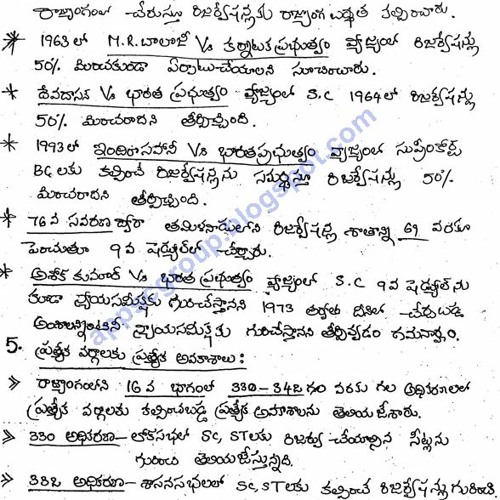 రాజ్యాంగంలో చేరుస్తూ రిజర్వేషన్లకు రాజ్యాంగ బద్ధత కల్పించారు.
* 1963లో M.R.బాలాజీ Vs కర్నాటక ప్రభుత్వం వ్యాజ్యంలో రిజర్వేషన్లు
50% మించకుండా ఏర్పాటుచేయాలని సూచించారు.
* దేవదాసన్ Vs భారత ప్రభుత్వం వ్యాజ్యంలో S.C 1964లో రిజర్వేషన్లు
50% మించరాదని తీర్పిచ్చింది.
* 1993లో ఇందిరాసహానీ Vs భారతప్రభుత్వం వ్యాజ్యంలో సుప్రీంకోర్టు
BC లకు కల్పించే రిజర్వేషన్లను సమర్థిస్తూ రిజర్వేషన్లు 50%
మించరాదని తీర్పిచ్చింది.
* 76వ సవరణ ద్వారా తమిళనాడులోని రిజర్వేషన్ల శాతాన్ని 69 వరకు
పెంచుతూ 9వ షెడ్యూల్‌లో చేర్చారు.
* అశోక్ కుమార్ Vs భారత ప్రభుత్వం వ్యాజ్యంలో S.C 9వ షెడ్యూల్‌ను
కూడా న్యాయసమీక్షకు గురిచేస్తానని 1973 తర్వాత దీనిలో చేర్చబడ్డ
అంశాలన్నింటిని న్యాయసమీక్షకు గురిచేస్తానని తీర్పివ్వడం గమనార్హం.
5. ప్రత్యేక వర్గాలకు ప్రత్యేక అవకాశాలు :
» రాజ్యాంగంలోని 16వ భాగంలో 330-342 వరకు గల అధికరణలలో
ప్రత్యేక వర్గాలకు కల్పించబడ్డ ప్రత్యేక అవకాశాలను తెలియజేశారు.
» 330 అధికరణ - లోక్‌సభలో SC, STలకు రిజర్వు చేయాల్సిన సీట్లను
గురించి తెలియజేస్తున్నది.
» 332 అధికరణ - శాసనసభలలో SC, STలకు కల్పించే రిజర్వేషన్లు గురించి
appscgroup.blogspot.com